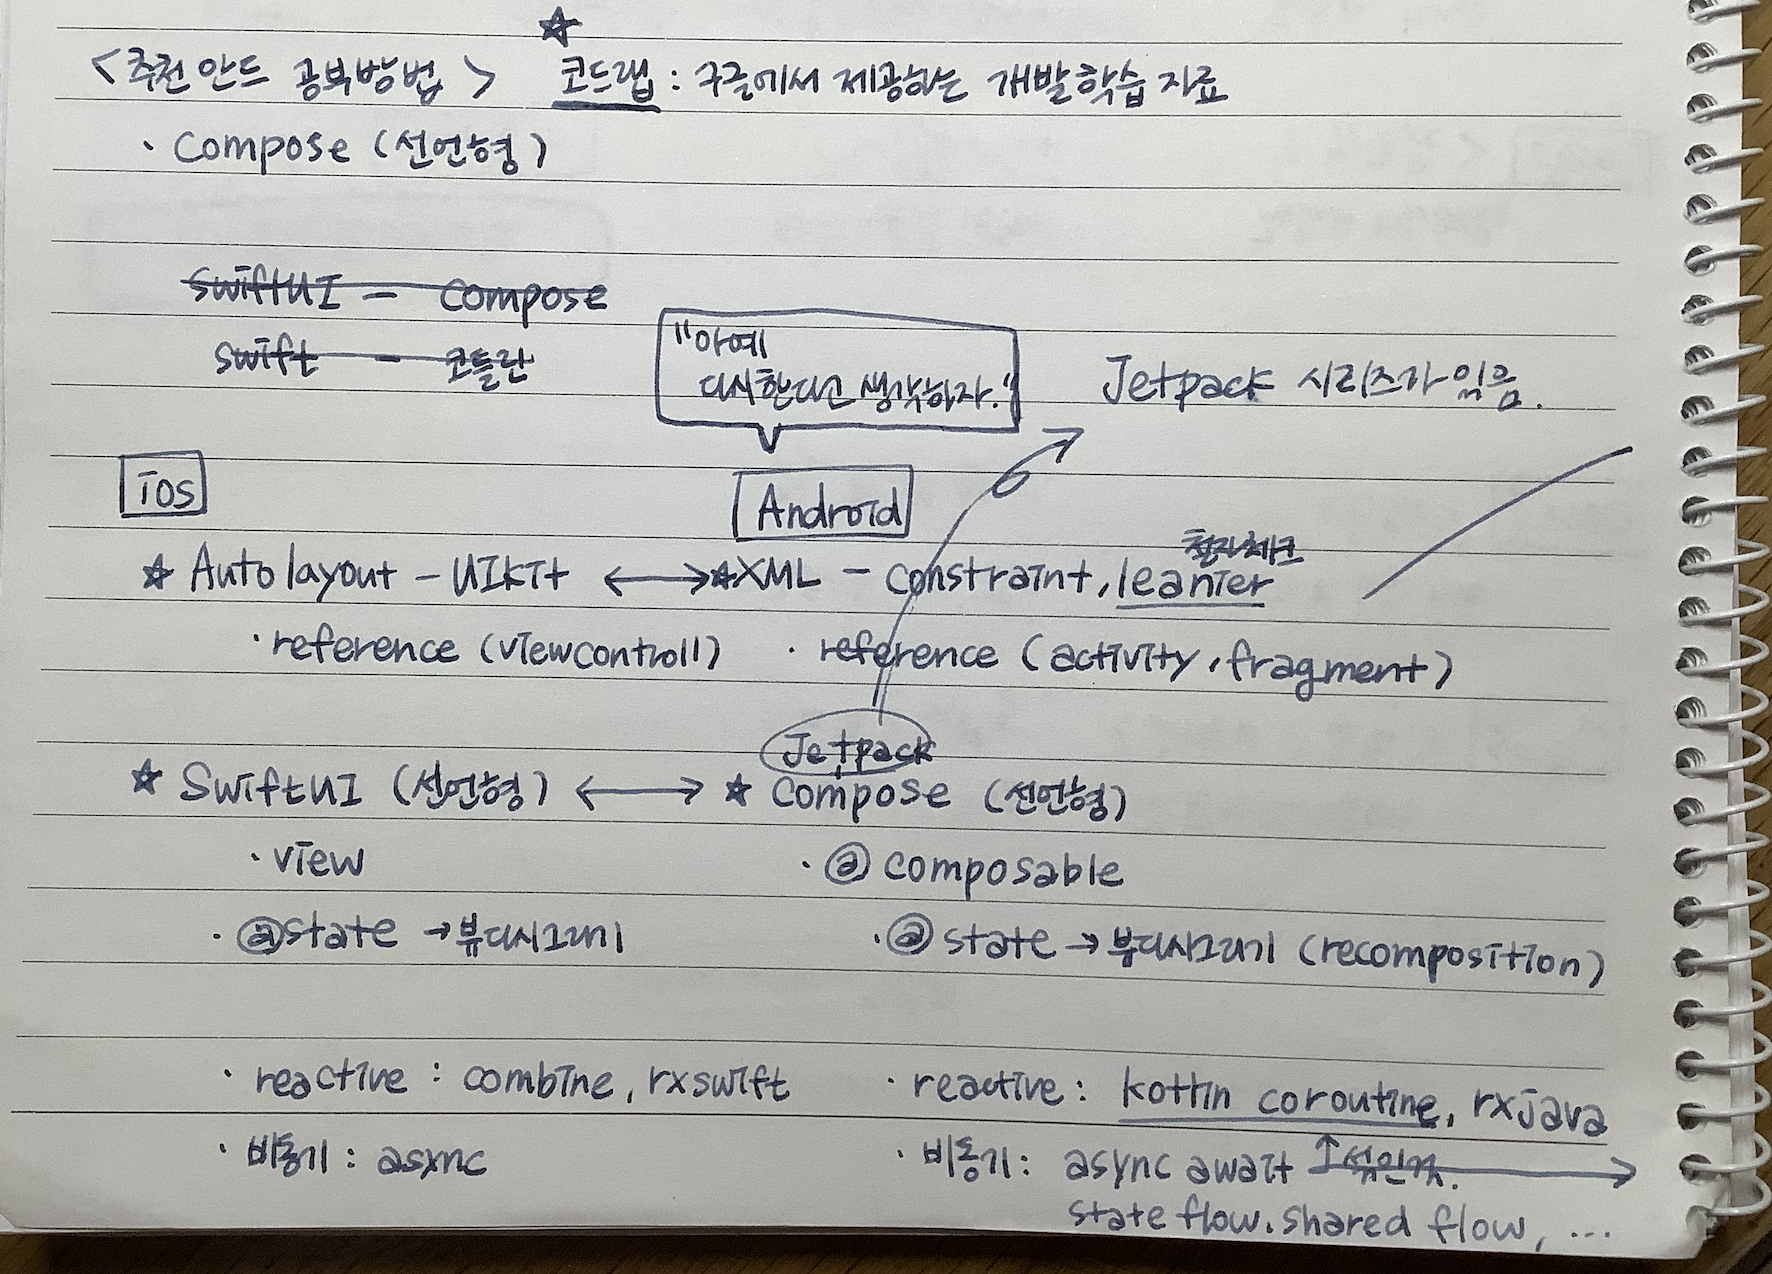 ☆
<추천 안드 공부방법> 코드랩 : 구글에서 제공하는 개발학습 자료
· compose (선언형)
swiftUI - compose
swift - 코틀린
"아예
다시한다고 생각하자."
Jetpack 시리즈가 있음.
iOS
Android
철자체크
☆ Autolayout - UIkit ↔ ☆XML - constraint, leanier
· reference (viewcontroll) · reference (activity, fragment)
Jetpack
☆ SwiftUI (선언형) ↔ ☆ compose (선언형)
· view · @ composable
· @state →뷰다시그리기 · @ state → 뷰다시그리기 (recomposition)
· reactive : combine, rxswift · reactive : kotlin coroutine, rxjava
· 비동기 : async · 비동기 : async await ↑섞인것.
state flow. shared flow, ...